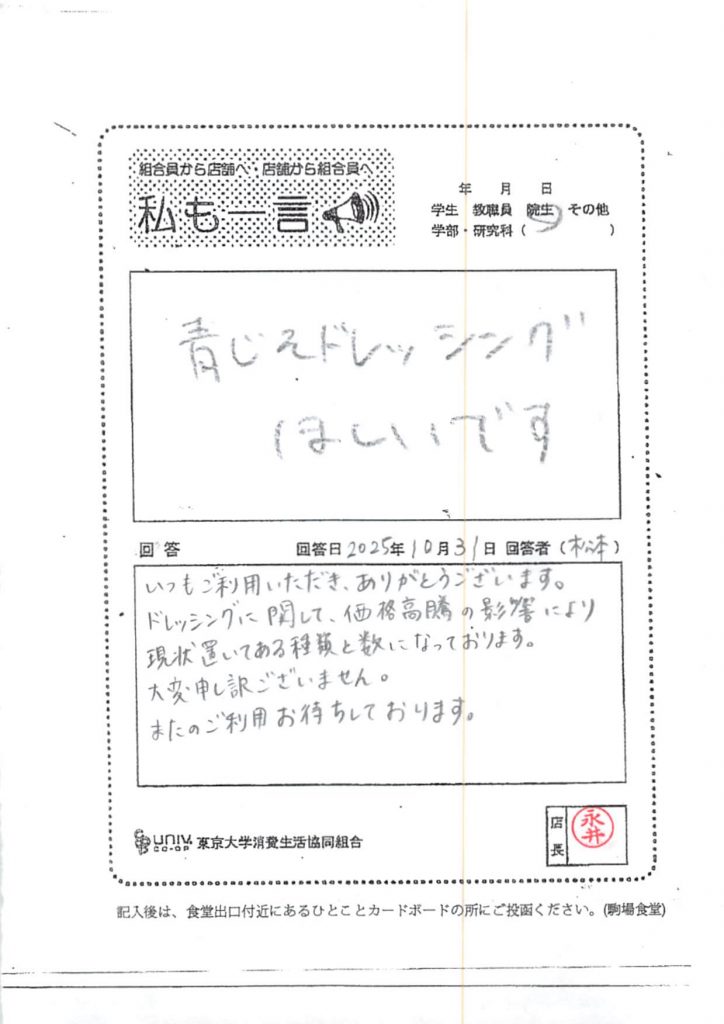 組合員から店舗へ・店舗から組合員へ
私も一言
年 月 日
学生 教職員 院生 その他
学部・研究科( )
青じそドレッシング
ほしいです
回答 回答日2025年10月31日 回答者(松本)
いつもご利用いただき、ありがとうございます。
ドレッシングに関して、価格高騰の影響により
現状置いてある種類と数になっております。
大変申し訳ございません。
またのご利用お待ちしております。
UNIV. CO-OP 東京大学消費生活協同組合
店長
永井
記入後は、食堂出口付近にあるひとことカードボードの所にご投函ください。(駒場食堂)